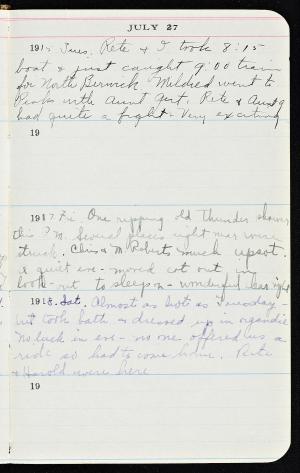 JULY 27
191 Tues. Rete & I took 8:15
boat & just caught 9:00 train
for North Berwick Mildred went to
Peaks with Aunt Gert. Rete & Aunt G
had quite a fight - Very exciting
19
1917 Fri One ripping old thunder shower
this P.M. Several places right near were
struck. Chin & M Roberts much upset.
& quiet eve - moved cot out in
look-out to sleep on - wonderful
1918. Sat. Almost as hot as Tuesday -
but took bath & dressed up in organdie
No luck in eve - no one offered us a
ride so had to come home. Rete
& Harold were here
19